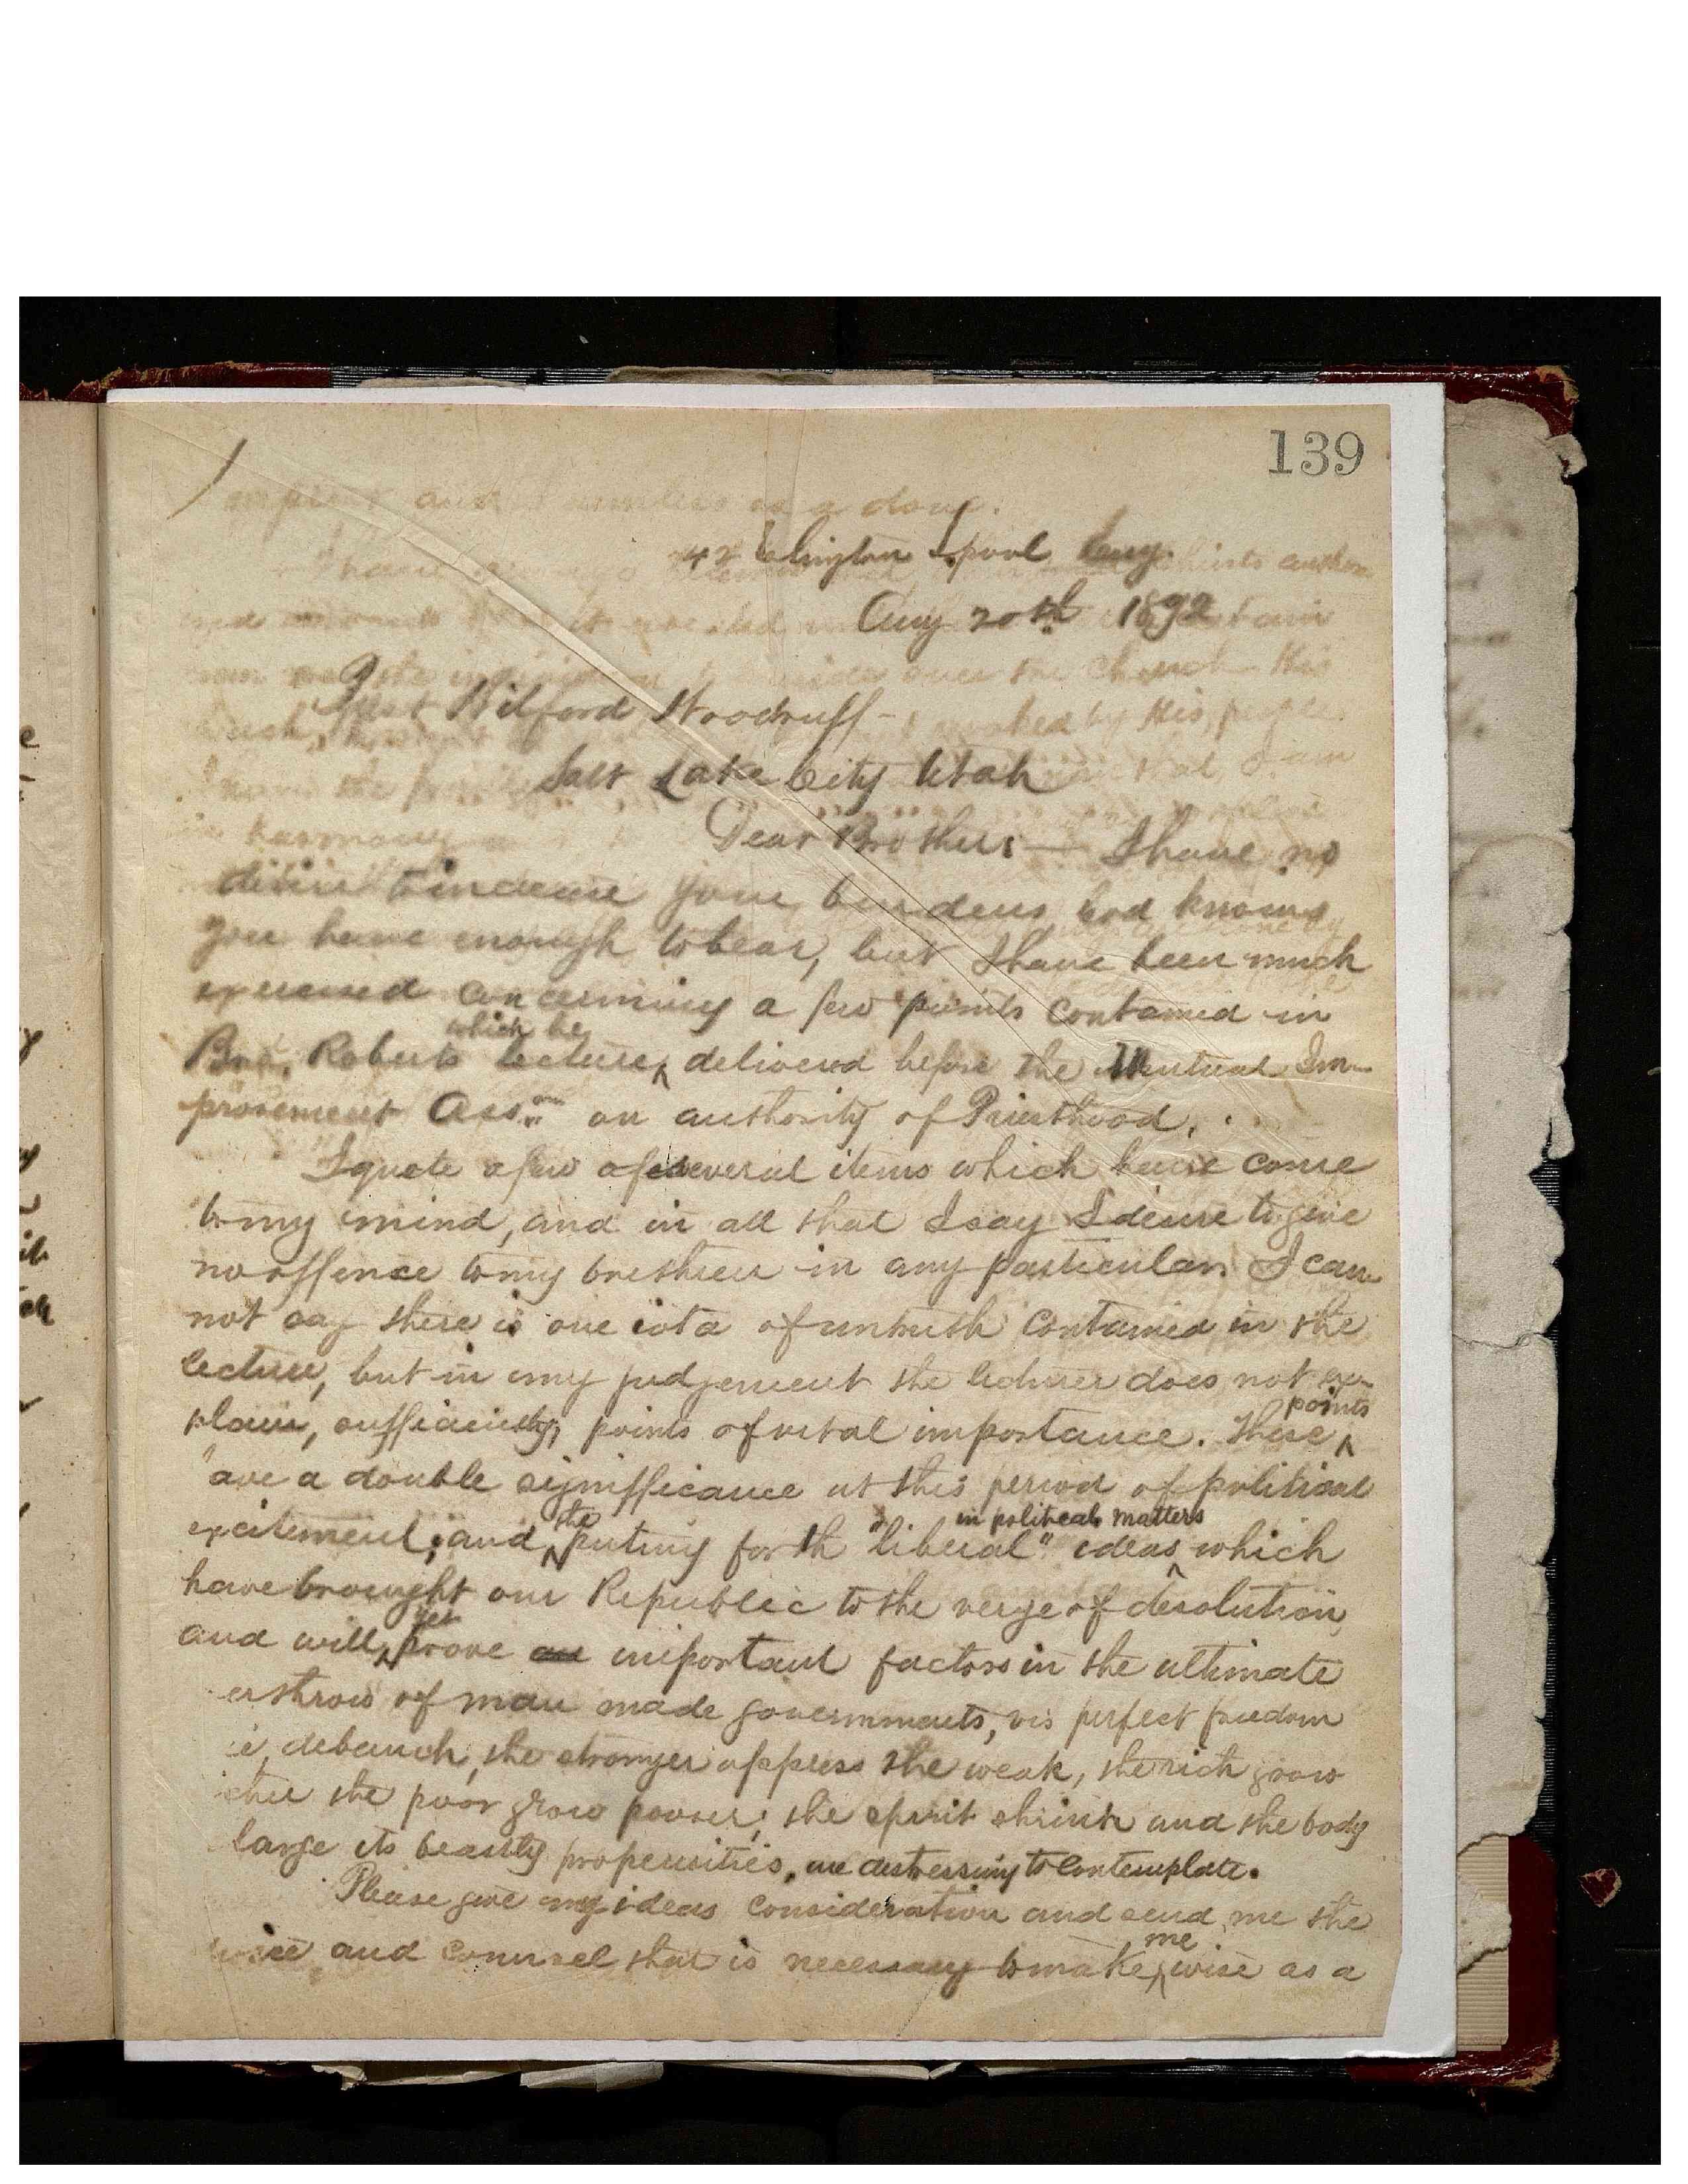 139
1
42 Islington L.pool Eng.
Aug 20th 1892
Prest Wilford Woodruff -
Salt Lake City Utah
Dear Brother:— I have no
desire to increase your burdens God knows
you have enough to bear, but I have been much
exercised concerning a few points contained in
which he
Bro. Roberts lecture, ^ delivered before the Mutual Im-
provement Assn. on authority of Priesthood.
I quote a few of several items which have come
to my mind, and in all that I say I desire to give
no offence to my brethren in any particular. I can
not say there is one iota of untruth contained in the
lecture, but in my judgement the lecturer does not ex-
points
plain, sufficiently, points of vital importance. These ^
are a double significance at this period of political
the in political matters
excitement; and ^ puting forth "liberal" ideas ^ which
have brought our Republic to the verge of desolution,
yet
and will ^ prove an important factors in the ultimate
erthrow of man made governments, vis perfect freedom
ie, debauch, the stronger oppress the weak, the rich grow
icher the poor grow poorer; the spirit shrink and the body
large its beastly propensities, are distressing to contemplate.
Please give my ideas consideration and send me the
me
and counsel that is necessary to make ^ wise as a